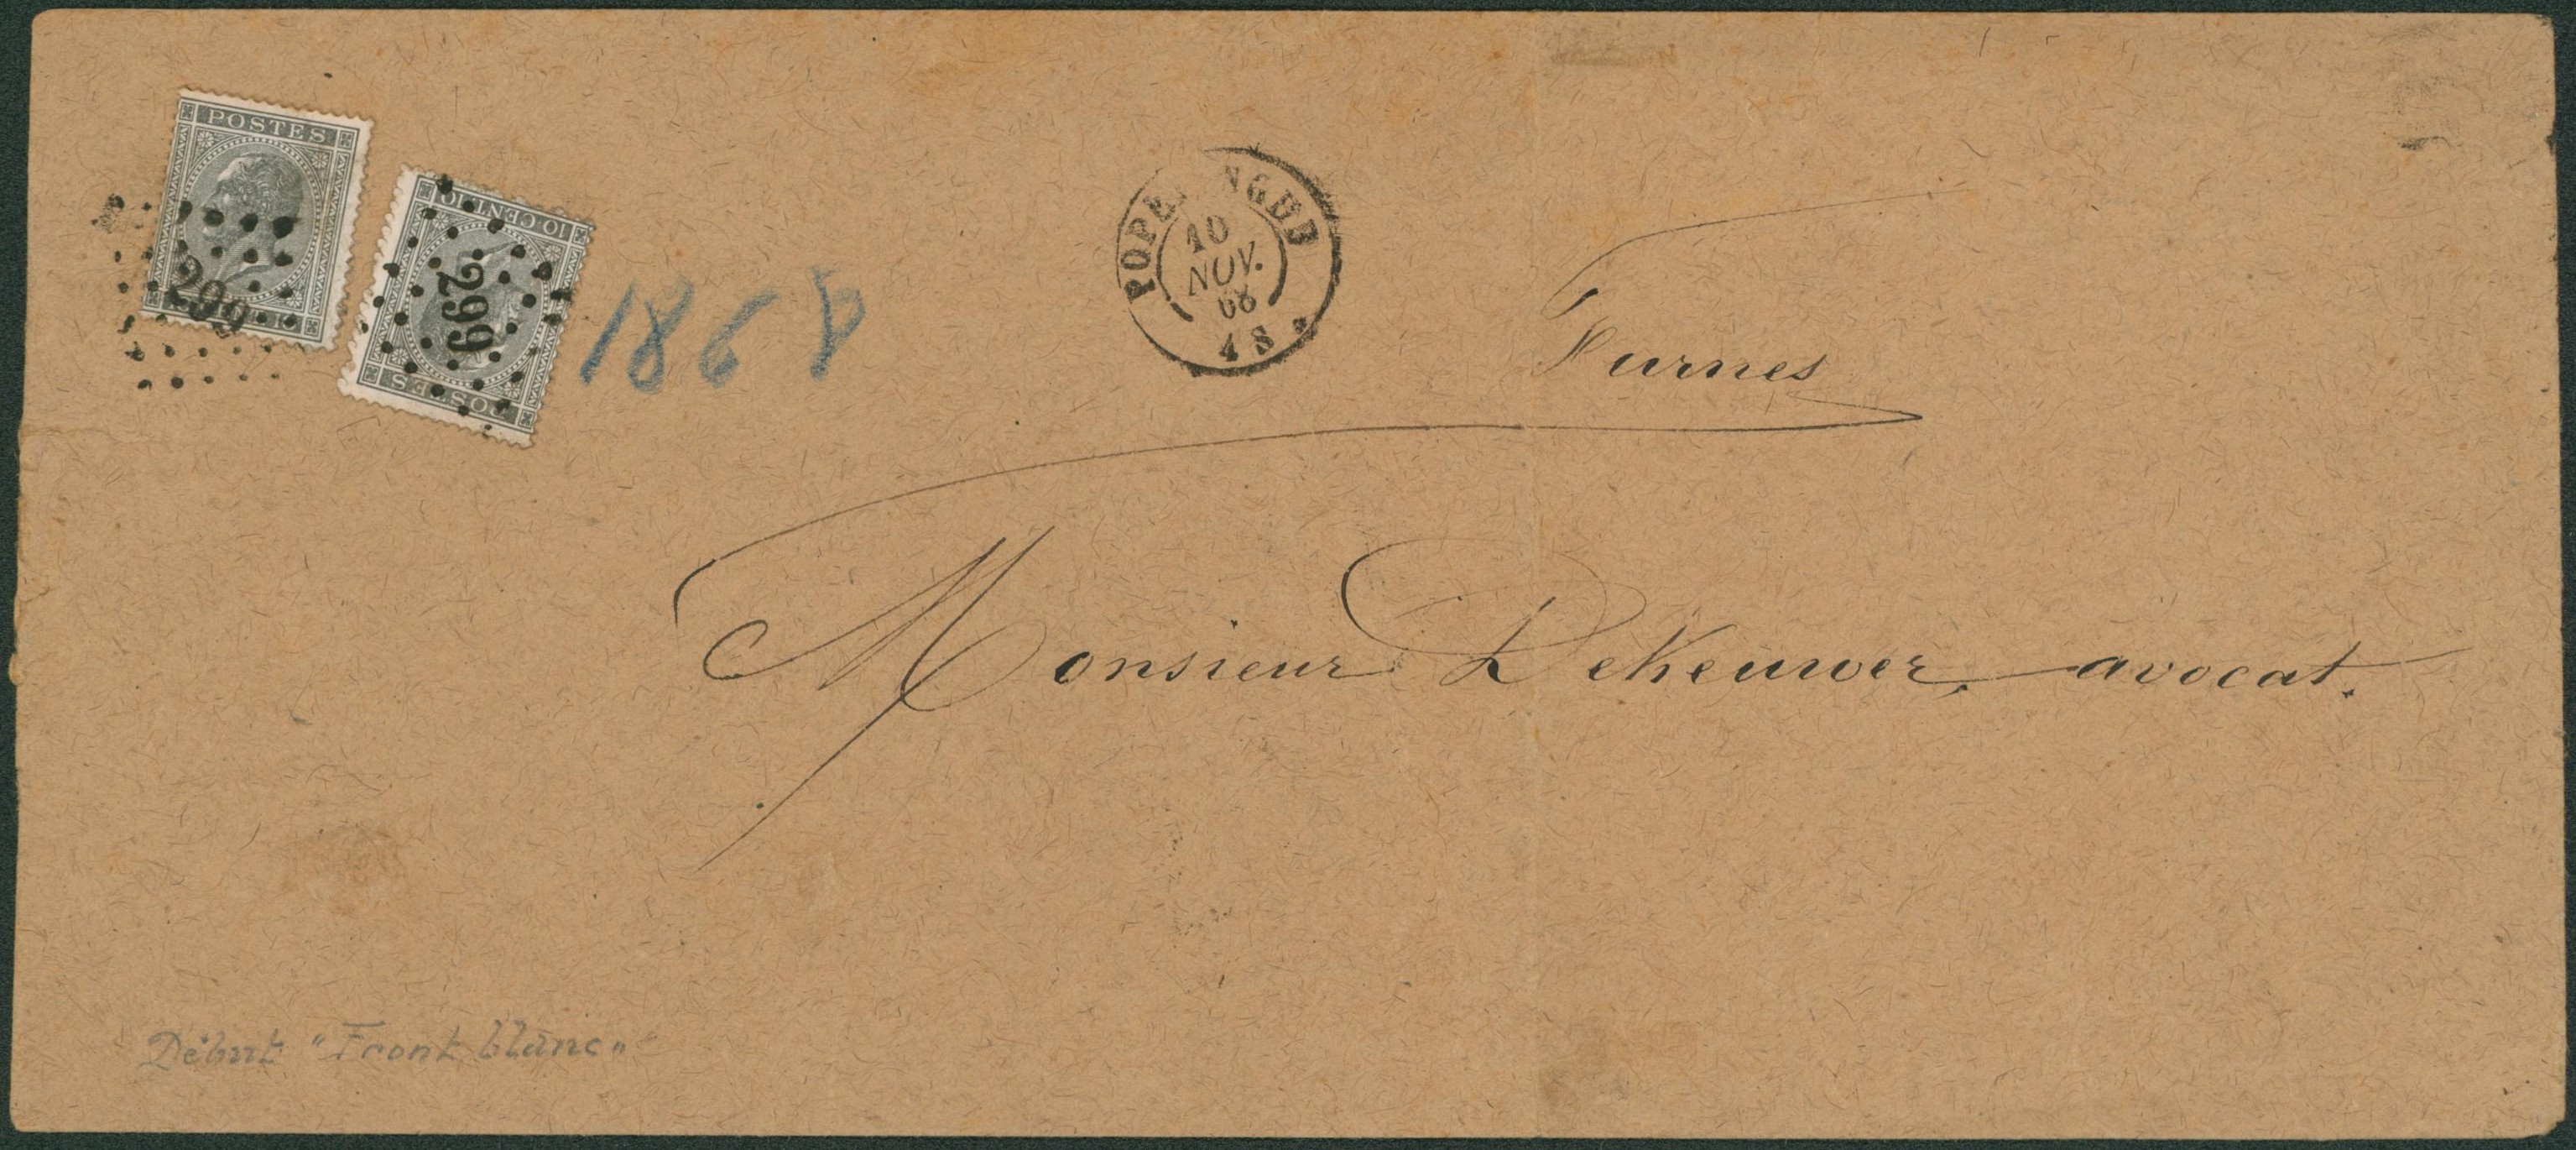 POSTES
299
10 CENTIM
299
POSTES
1868
POPERINGHE
10
NOV.
68
4 S
Furnes
Monsieur DeKeuwer, avocat.
Début "Front blanc"